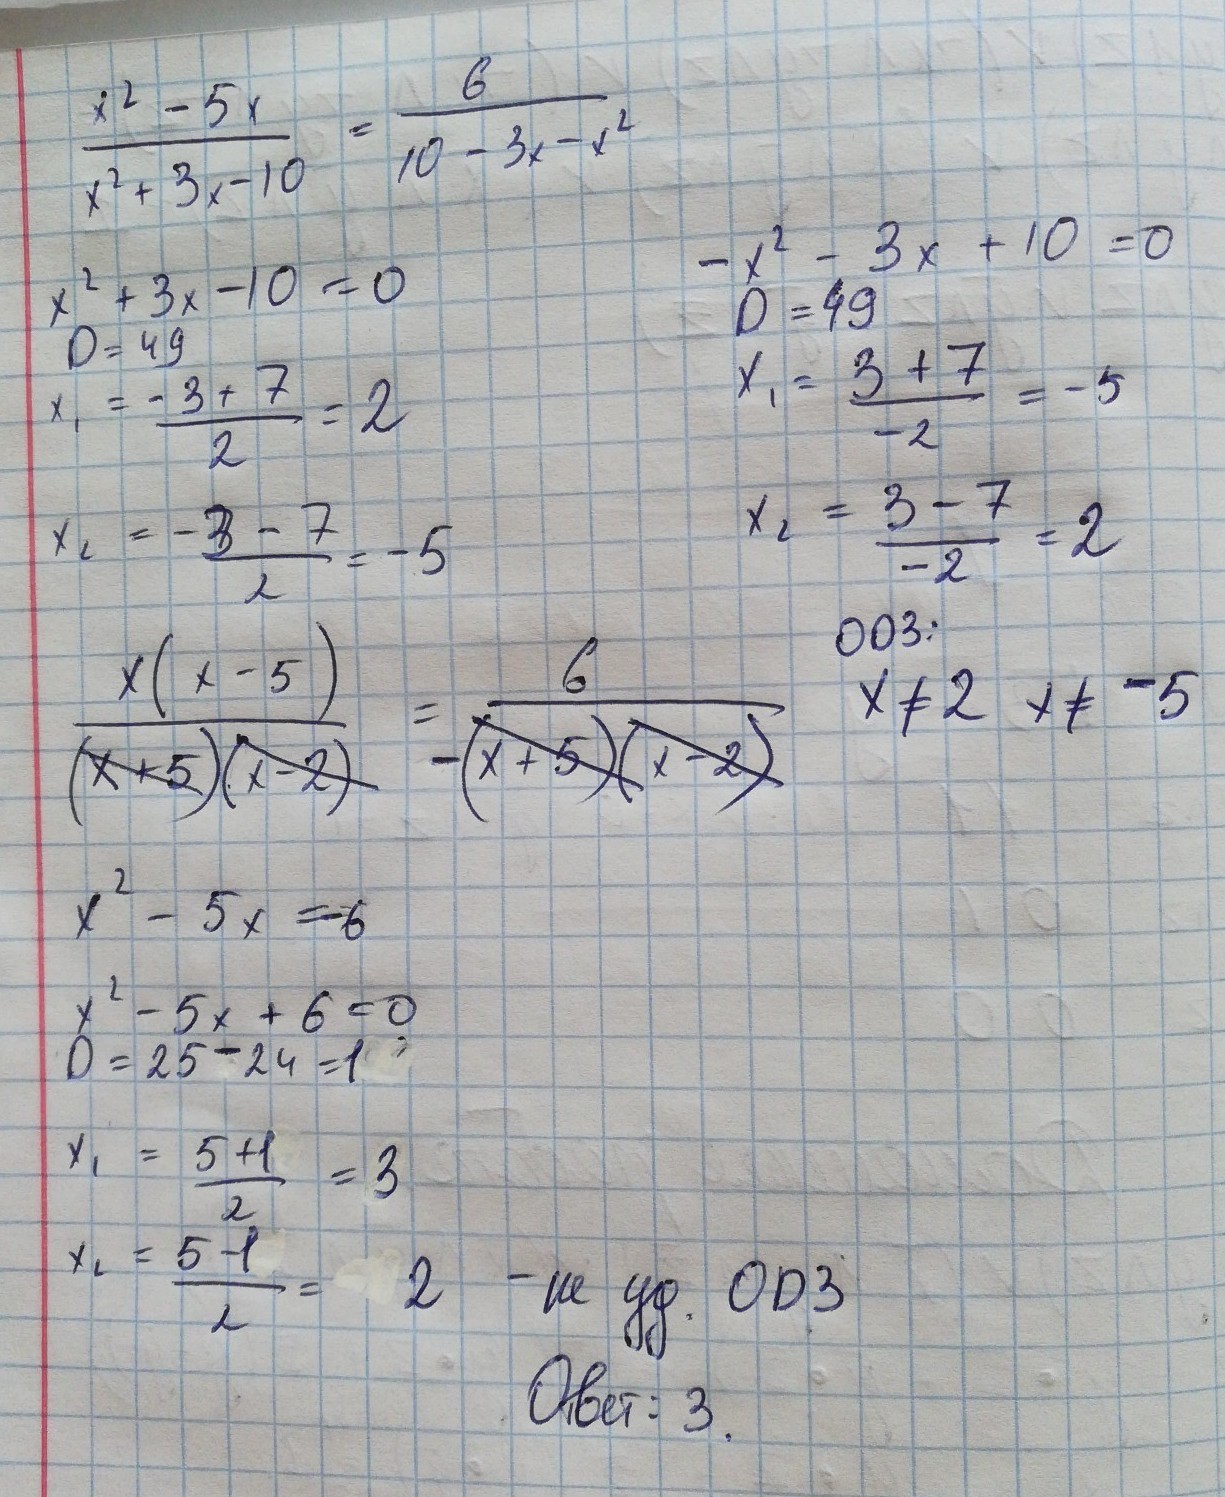 x² - 5x / x² + 3x - 10 = 6 / 10 - 3x - x²
x² + 3x - 10 = 0
D = 49
x₁ = -3 + 7 / 2 = 2
x₂ = -3 - 7 / 2 = -5
-x² - 3x + 10 = 0
D = 49
x₁ = 3 + 7 / -2 = -5
x₂ = 3 - 7 / -2 = 2
ОДЗ:
x ≠ 2 x ≠ -5
x(x - 5) / (x + 5)(x - 2) = 6 / -(x + 5)(x - 2)
x² - 5x = -6
x² - 5x + 6 = 0
D = 25 - 24 = 1
x₁ = 5 + 1 / 2 = 3
x₂ = 5 - 1 / 2 = 2 - не уд. ОДЗ
Ответ: 3.